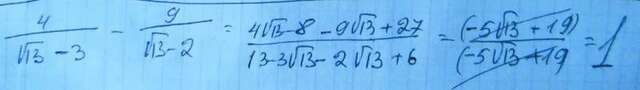 4/(√13 - 3) - 9/(√13 - 2) = (4√13 - 8 - 9√13 + 27)/(13 - 3√13 - 2√13 + 6) = (-5√13 + 19)/(-5√13 + 19 = 1